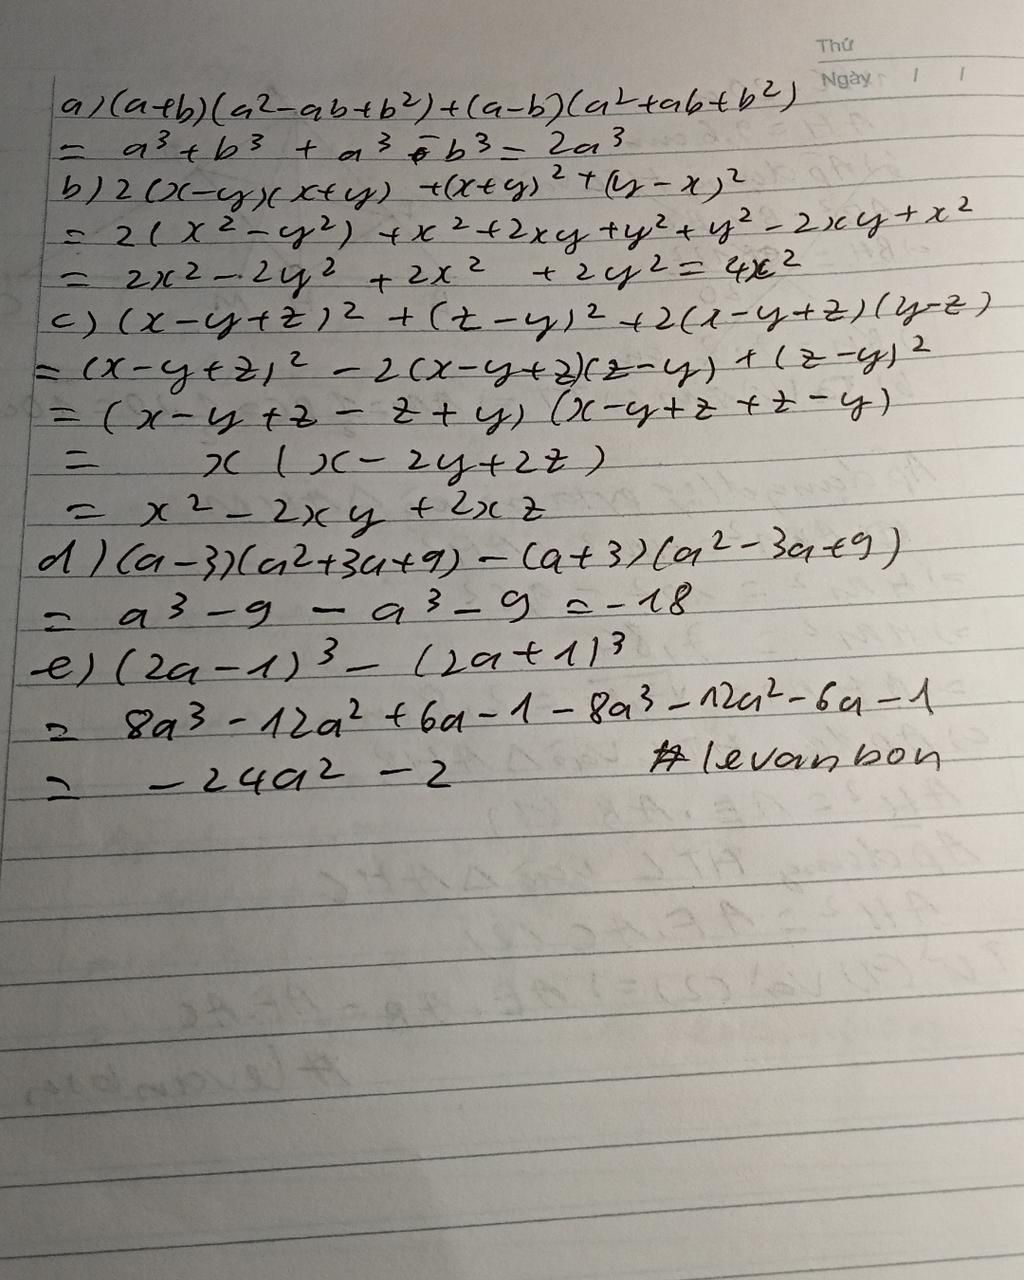 Thứ
Ngày / /
a) (a+b)(a²-ab+b²)+(a-b)(a²+ab+b²)
= a³+b³ + a³ - b³ = 2a³
b) 2(x-y)(x+y) +(x+y)²+(y-x)²
= 2(x²-y²) +x²+2xy+y²+y²-2xy+x²
= 2x²-2y² +2x² +2y² = 4x²
c) (x-y+z)² +(z-y)² +2(x-y+z)(y-z)
= (x-y+z)² -2(x-y+z)(z-y) +(z-y)²
= (x-y+z-z+y) (x-y+z+z-y)
= x (x-2y+2z)
= x²-2xy+2xz
d) (a-3)(a²+3a+9) -(a+3)(a²-3a+9)
= a³-9 - a³-9 = -18
e) (2a-1)³ - (2a+1)³
= 8a³-12a²+6a-1-8a³-12a²-6a-1
= -24a²-2 #levanbon